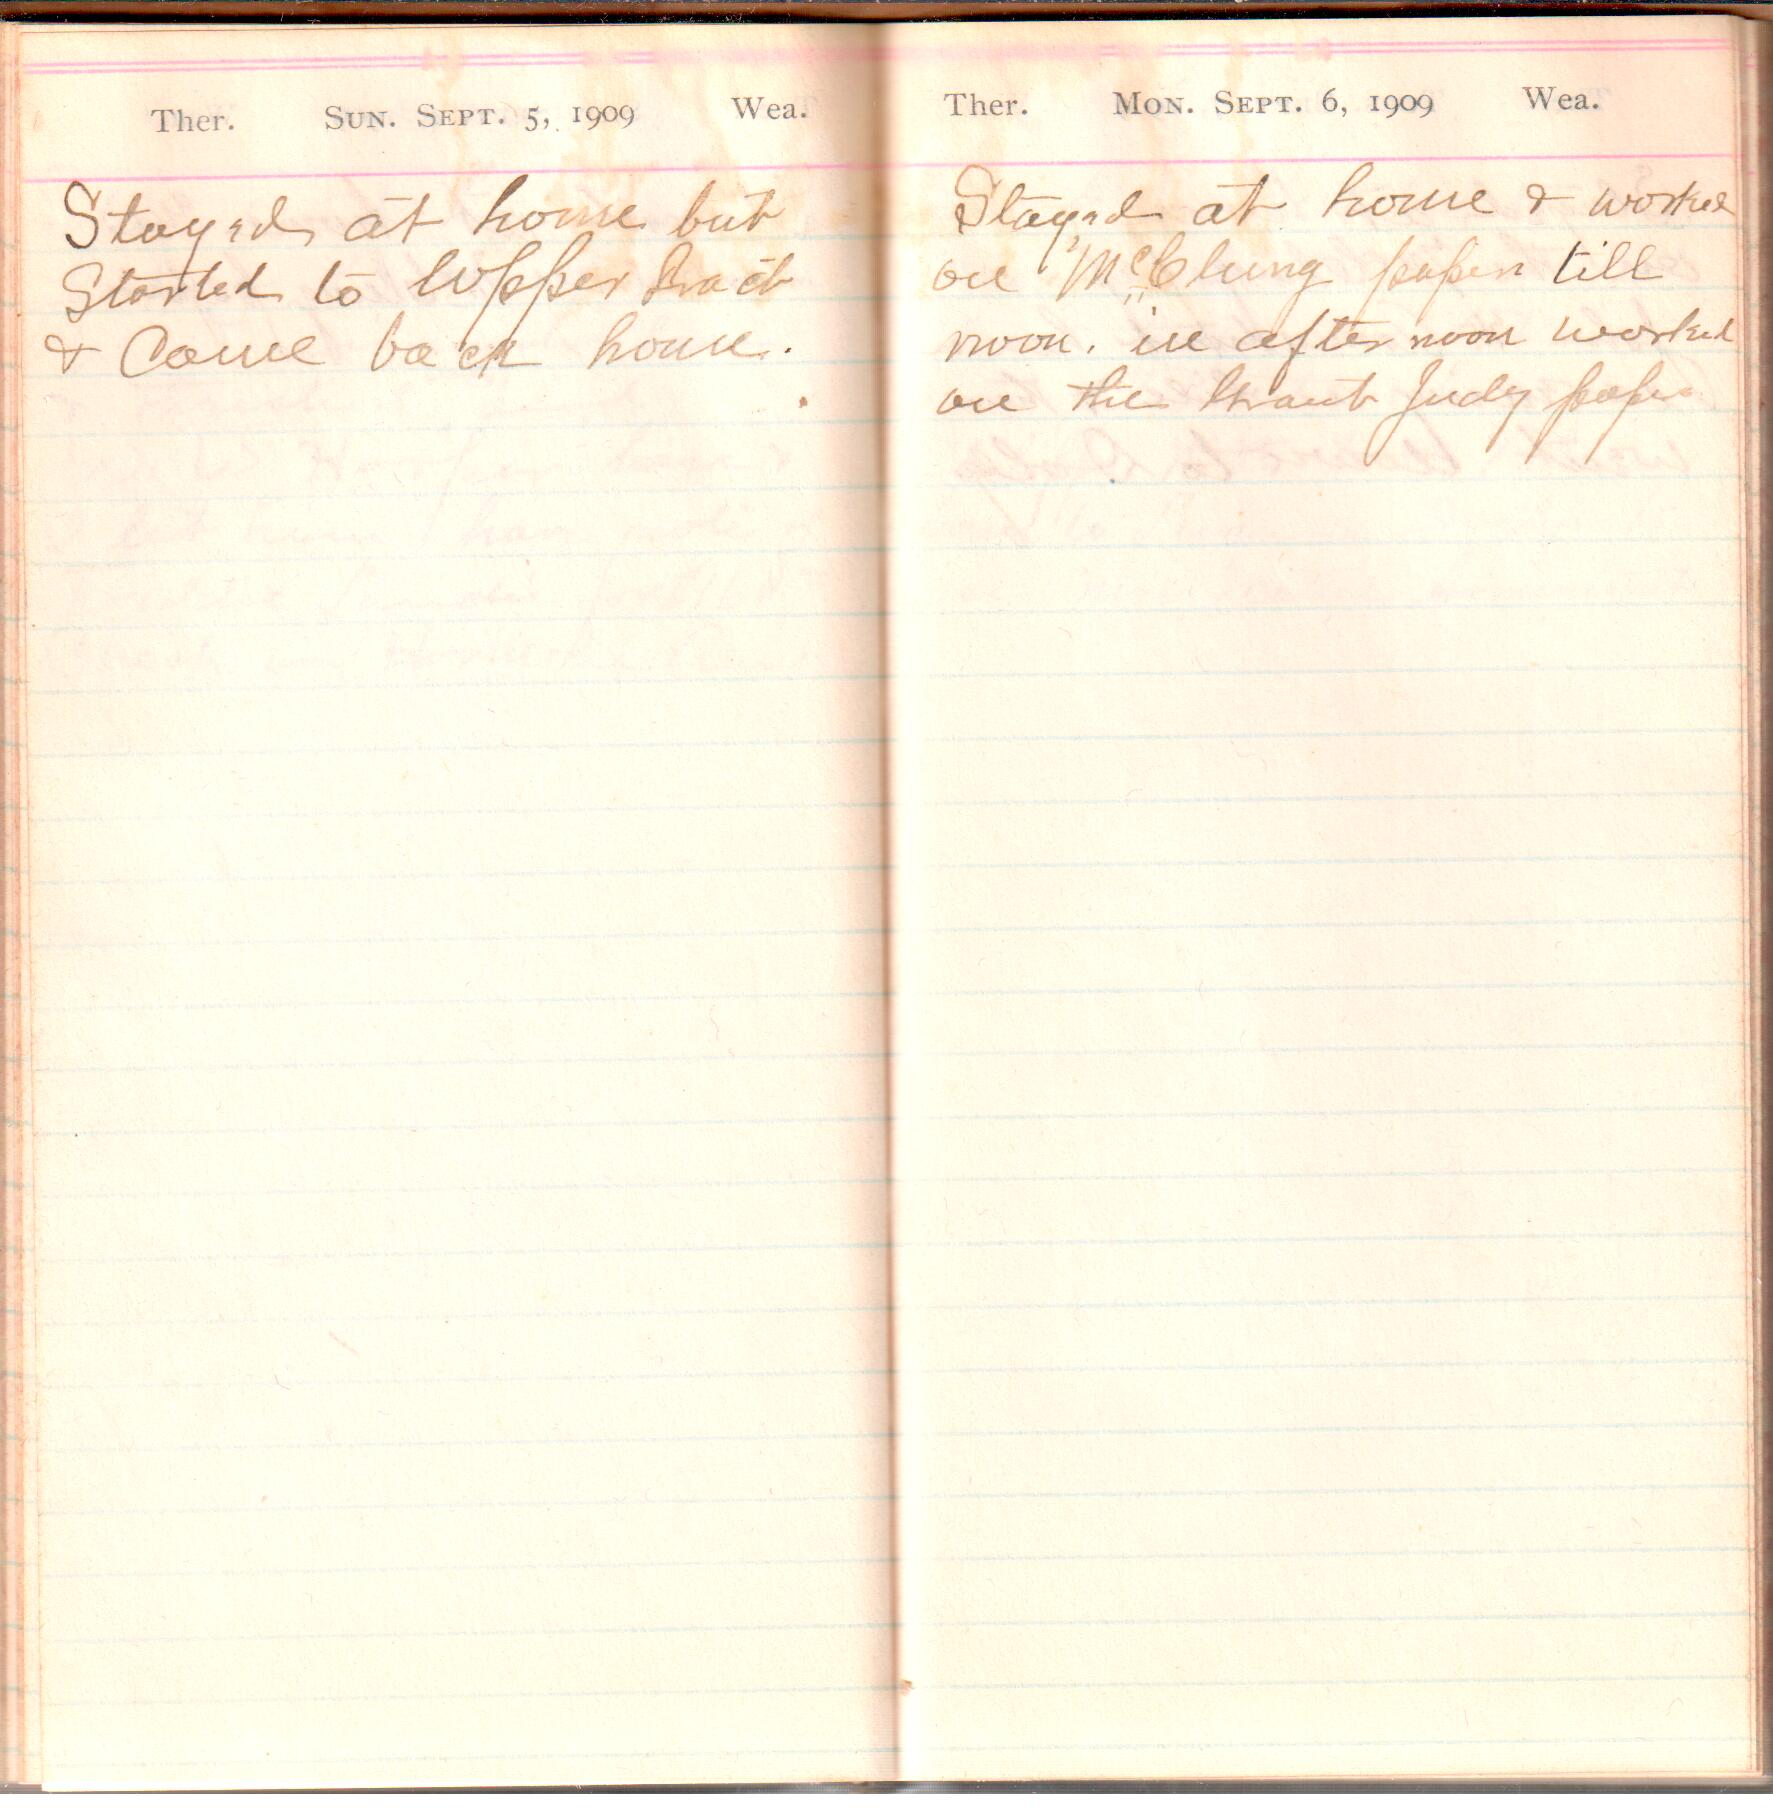 Ther. Sun. Sept. 5, 1909 Wea.
Stayed at home but
Started to Upper Tract
& Came back home.
Ther. Mon. Sept. 6, 1909 Wea.
Stayed at home & worked
on McClung papers till
noon. in after noon worked
on the Grant Judy papers